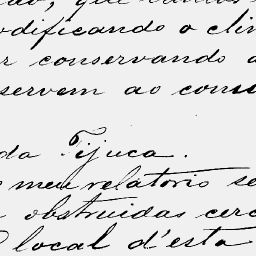 que
odificando o clim
r conservando a
servem ao cons
da Tijuca.
o meu relatorio se
obstruidas cerc
O local d'esta